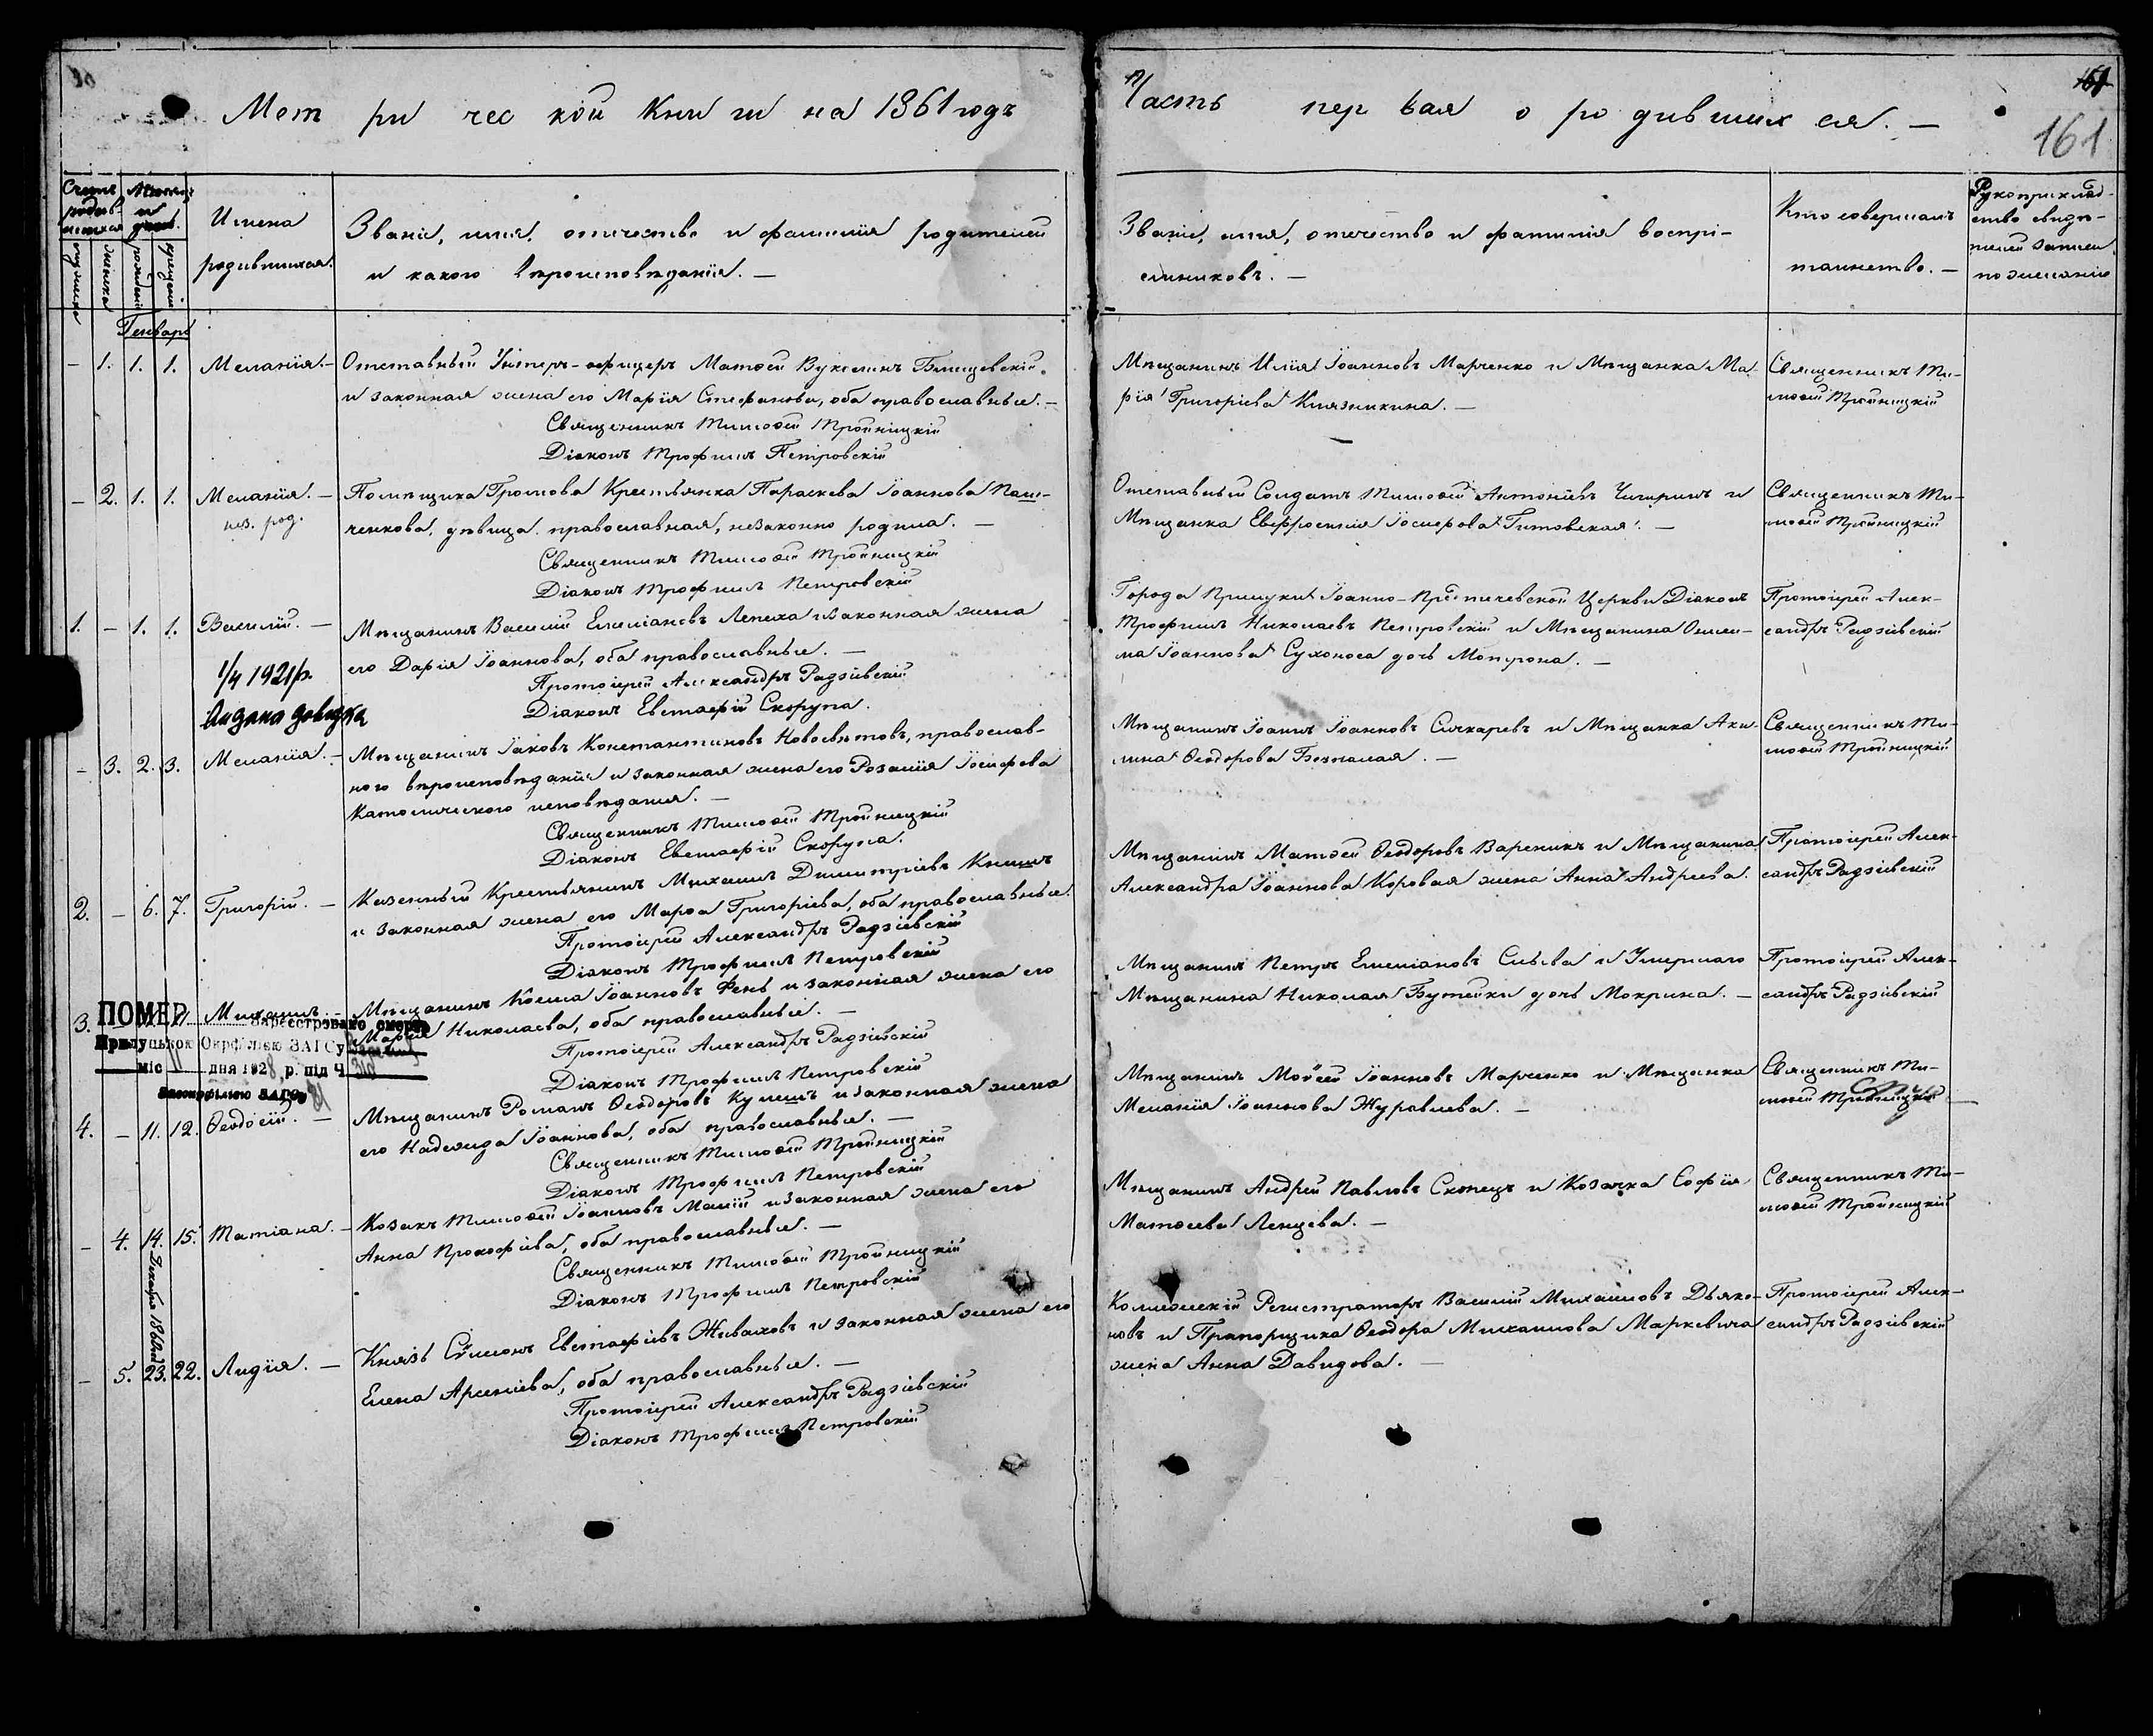 Метрической Книги на 1861 годъ
Часть первая о родившихся. —
161
161
Счетъ родив-шихся
Мѣсяцъ и день.
мужеска
женска
рожденія
крещенія
Имена
родившихся.
Званіе, имя, отчество и фамилія родителей
и какого вѣроисповѣданія. —
Званіе, имя, отчество и фамилія воспрі-
емниковъ. —
Кто совершалъ
таинство. —
Рукоприклад-
ство свидѣ-
телей записи
по желанію
Генварь
— 1. 1. 1. Меланія. — Отставный Унтеръ-офицеръ Матѳей
и законная жена его Марія Стефанова, оба православные. —
Священникъ Тимоѳей Тройницкій
Діаконъ Трофимъ Петровскій
Мѣщанинъ Илія Іоанновъ Марченко и Мѣщанка Ма-
рія Григоріева Княжикина. —
Священникъ Ти-
моѳей Тройницкій
— 2. 1. 1. Меланія. — Помѣщика Громова Крестьянка Параскева Іоаннова Пан-
нез. род.
ченкова, дѣвица православная, незаконно родила. —
Священникъ Тимоѳей Тройницкій
Діаконъ Трофимъ Петровскій
Отставный Солдатъ Тимоѳей Антоніевъ Чигринъ и
Мѣщанка Евфросинія Іосифова Гитовская. —
Священникъ Ти-
моѳей Тройницкій
1. — 1. 1. Василій. — Мѣщанинъ Василій Емеліановъ Лепеха и законная жена
его Дарія Іоаннова, оба православные. —
Протоіерей Александръ Радзіевскій
Діаконъ Евстафій Скорупа.
1/4 1921 р.
Видана довидка
Города Прилуки Іоанно-Предтечевской Церкви Діаконъ
Трофимъ Николаевъ Петровскій и Мѣщанина
Іоаннова Сухоноса дочь Мотрона. —
Протоіерей Алек-
сандръ Радзіевскій
— 3. 2. 3. Меланія. — Мѣщанинъ Іаковъ Константиновъ Новосвѣтовъ, православ-
ного вѣроисповѣданія и законная жена его Розалія Іосифова
Католического исповѣданія. —
Священникъ Тимоѳей Тройницкій
Діаконъ Евстафій Скорупа.
Мѣщанинъ Іоаннъ Іоанновъ Сичкаревъ и Мѣщанка Аки-
лина Ѳеодорова —
Священникъ Ти-
моѳей Тройницкій
2. — 6. 7. Григорій. — Казенный Крестьянинъ Михаилъ Димитріевъ Книшъ
и законная жена его Марѳа Григоріева, оба православные.
Протоіерей Александръ Радзіевскій
Діаконъ Трофимъ Петровскій
Мѣщанинъ Матѳей Ѳеодоровъ Вареникъ и Мѣщанина
Александра Іоаннова Коровая жена Анна Андреева.
Протоіерей Алек-
сандръ Радзіевскій
3. Михаилъ. — Мѣщанинъ Косма Іоанновъ Фень и законная жена его
Марія Николаева, оба православные. —
Протоіерей Александръ Радзіевскій
Діаконъ Трофимъ Петровскій
ПОМЕР
Зареєстровано смерть
Прилуцькою Окрфілією ЗАГСу
міс дня 1928 р. під Ч. 316
Мѣщанинъ Петръ Емеліановъ и Умершаго
Мѣщанина Николая Бутейки дочь Мокрина. —
Протоіерей Алек-
сандръ Радзіевскій
4. — 11. 12. Ѳеодосій. — Мѣщанинъ Романъ Ѳеодоровъ Кулешъ и законная жена
его Надежда Іоаннова, оба православные. —
Священникъ Тимоѳей Тройницкій
Діаконъ Трофимъ Петровскій
Мѣщанинъ Моѵсей Іоанновъ Марченко и Мѣщанка
Меланія Іоаннова Журавлева. —
Священникъ Ти-
моѳей Тройницкій
— 4. 14. 15. Татіана. — Козакъ Тимоѳей Іоанновъ Малій и законная жена его
Анна Прокофіева, оба православные. —
Священникъ Тимоѳей Тройницкій
Діаконъ Трофимъ Петровскій
Мѣщанинъ Андрей Павловъ Скопецъ и Козачка Софія
Матѳеева Ленцева. —
Священникъ Ти-
моѳей Тройницкій
Декабря 1860 год
— 5. 23. 22. Лидія. — Князь Сѵмеонъ Евстафіевъ Жеваховъ и законная жена его
Елена Арсеніева, оба православные. —
Протоіерей Александръ Радзіевскій
Діаконъ Трофимъ Петровскій
Коллежскій Регистраторъ Василій Михаиловъ Дьяко-
новъ и Прапорщика Ѳеодора Михаилова Маркевича
жена Анна Давидова. —
Протоіерей Алек-
сандръ Радзіевскій